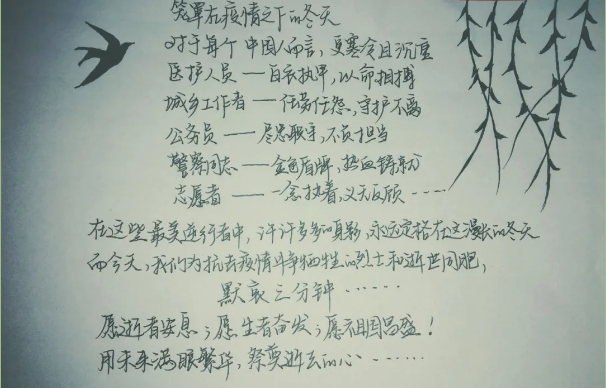 笼罩在疫情之下的冬天
对于每个中国人而言，更寒冷且沉重
医护人员——白衣执甲，以命相搏
城乡工作者——任劳任怨，守护不离
公务员——尽忠职守，不负担当
警察同志——金色盾牌，热血铸就
志愿者——一念执着，义无反顾……
在这些最美逆行者中，许许多多的身影，永远定格在这漫长的冬天
而今天，我们为抗击疫情斗争牺牲的烈士和逝世同胞，
默哀三分钟……
愿逝者安息；愿生者奋发；愿祖国昌盛！
用未来满眼繁华，祭奠逝去的心……